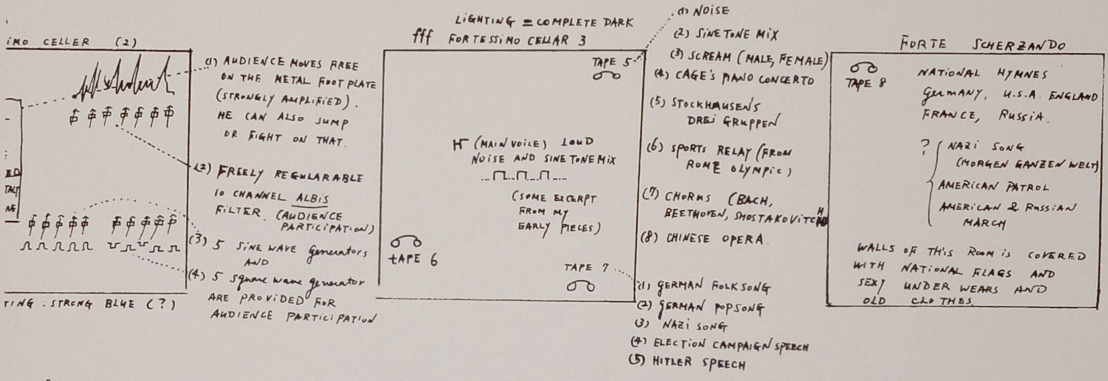 IMO CELLER (2)
(1) AUDIENCE MOVES FREE
ON THE METAL FOOT PLATE
(STRONGLY AMPLIFIED).
HE CAN ALSO JUMP
OR FIGHT ON THAT.
(2) FREELY REGULARABLE
10 CHANNEL ALBIS
FILTER (AUDIENCE
PARTICIPATION)
(3) 5 SINE WAVE GENERATORS
AND
(4) 5 SQUARE WAVE GENERATOR
ARE PROVIDED FOR
AUDIENCE PARTICIPATION
TING: STRONG BLUE (?)
LIGHTING = COMPLETE DARK
fff FORTESSIMO CELLAR 3
TAPE 5
(MAIN VOICE) LOUD
NOISE AND SINE TONE MIX
(SOME EXCERPT
FROM MY
EARLY PIECES)
TAPE 6
TAPE 7
(1) NOISE
(2) SINE TONE MIX
(3) SCREAM (MALE, FEMALE)
(4) CAGE'S PIANO CONCERTO
(5) STOCKHAUSEN'S
DREI GRUPPEN
(6) SPORTS RELAY (FROM
ROME OLYMPIC)
(7) CHORUS (BACH,
BEETHOVEN, SHOSTAKOVITCH
(8) CHINESE OPERA.
(1) GERMAN FOLKSONG
(2) GERMAN POPSONG
(3) NAZI SONG
(4) ELECTION CAMPAIGN SPEECH
(5) HITLER SPEECH
FORTE SCHERZANDO
TAPE 8
NATIONAL HYMNES
GERMANY, U.S.A. ENGLAND
FRANCE, RUSSIA.
? NAZI SONG
(MORGEN GANZEN WELT)
AMERICAN PATROL
AMERICAN & RUSSIAN
MARCH
WALLS OF THIS ROOM IS COVERED
WITH NATIONAL FLAGS AND
SEXY UNDER WEARS AND
OLD CLOTHES.